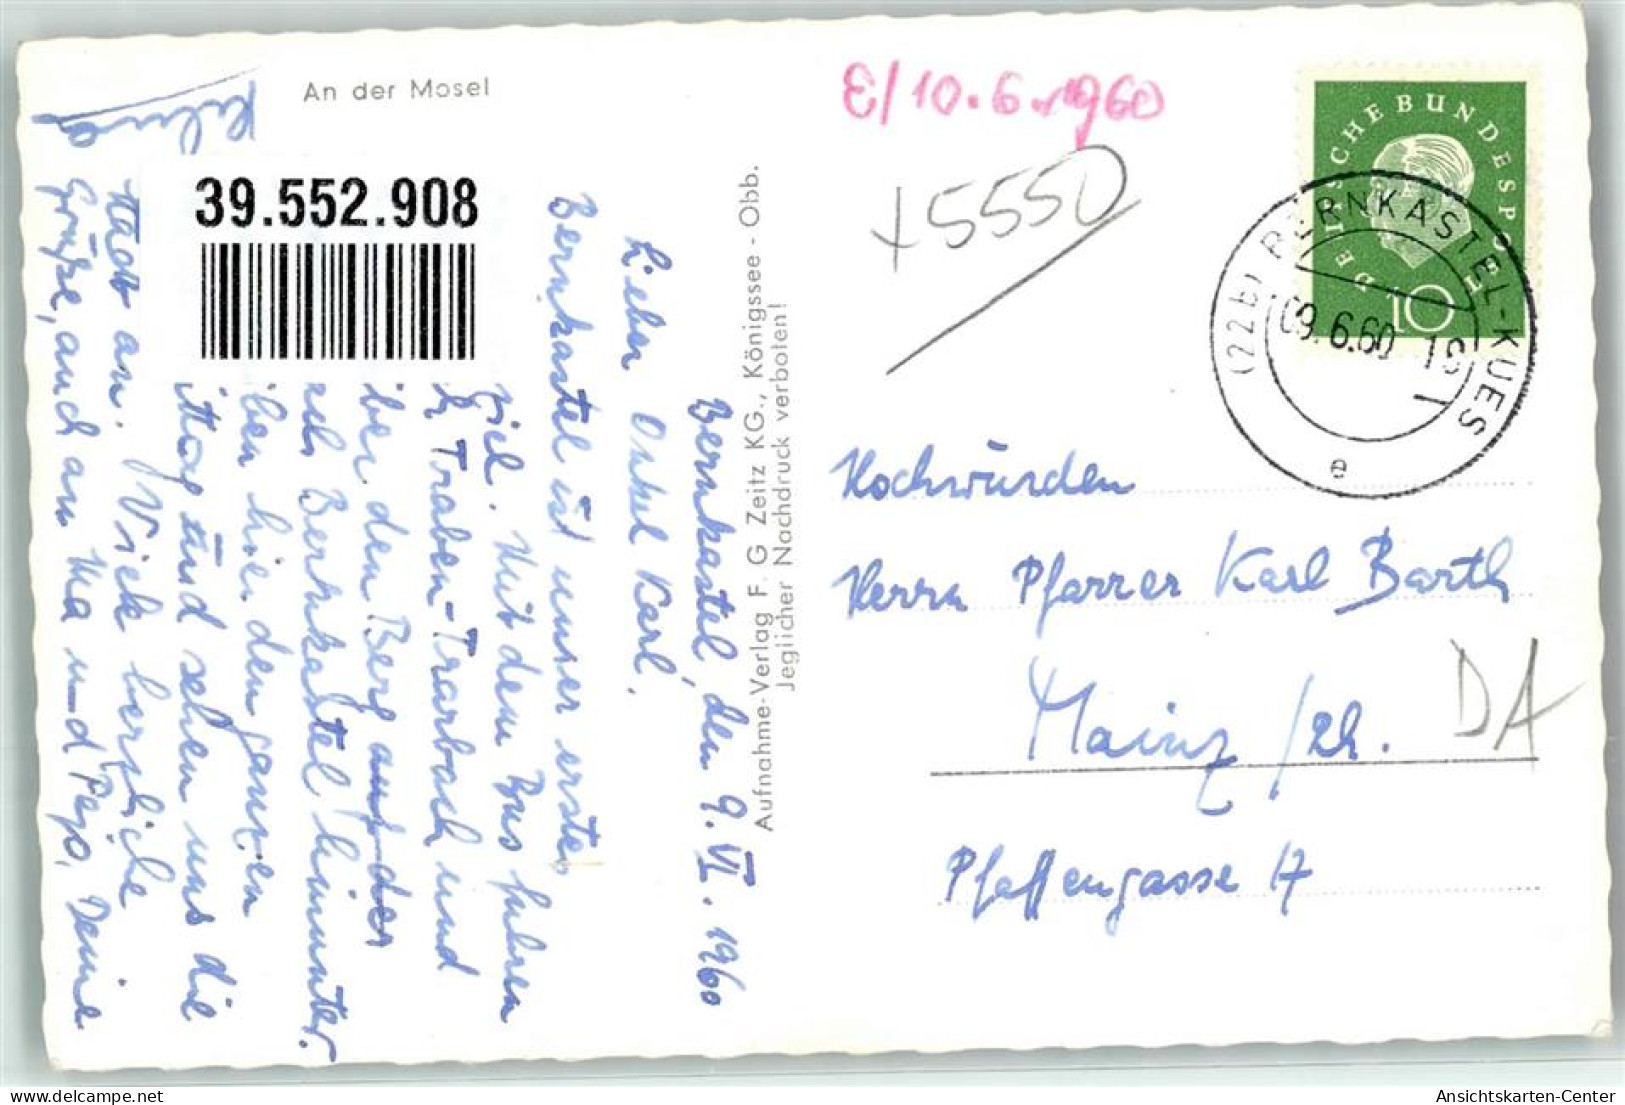 An der Mosel
39.552.908
Bernkastel, den 9. VI. 1960
Lieber Onkel Karl.
Bernkastel ist unser erstes
Ziel. Mit dem Bus fuhren
Traben-Trarbach und
über den Berg auf der
nach Bernkastel hinunter.
ben hier den ganzen
ittag und sehen uns die
Stadt an. Viele herzliche
Grüße, auch an Ma und Pepo, Deine
Aufnahme-Verlag F. G Zeitz KG., Königssee - Obb.
Jeglicher Nachdruck verboten!
E/10.6.1960
+5550
DEUTSCHE BUNDESPOST
10
(22b) BERNKASTEL-KUES
09.6.60.18
e
Hochwürden
Herrn Pfarrer Karl Barth
Mainz/Rh.
DA
Pfaffengasse 17
Ansichtskarten-Center